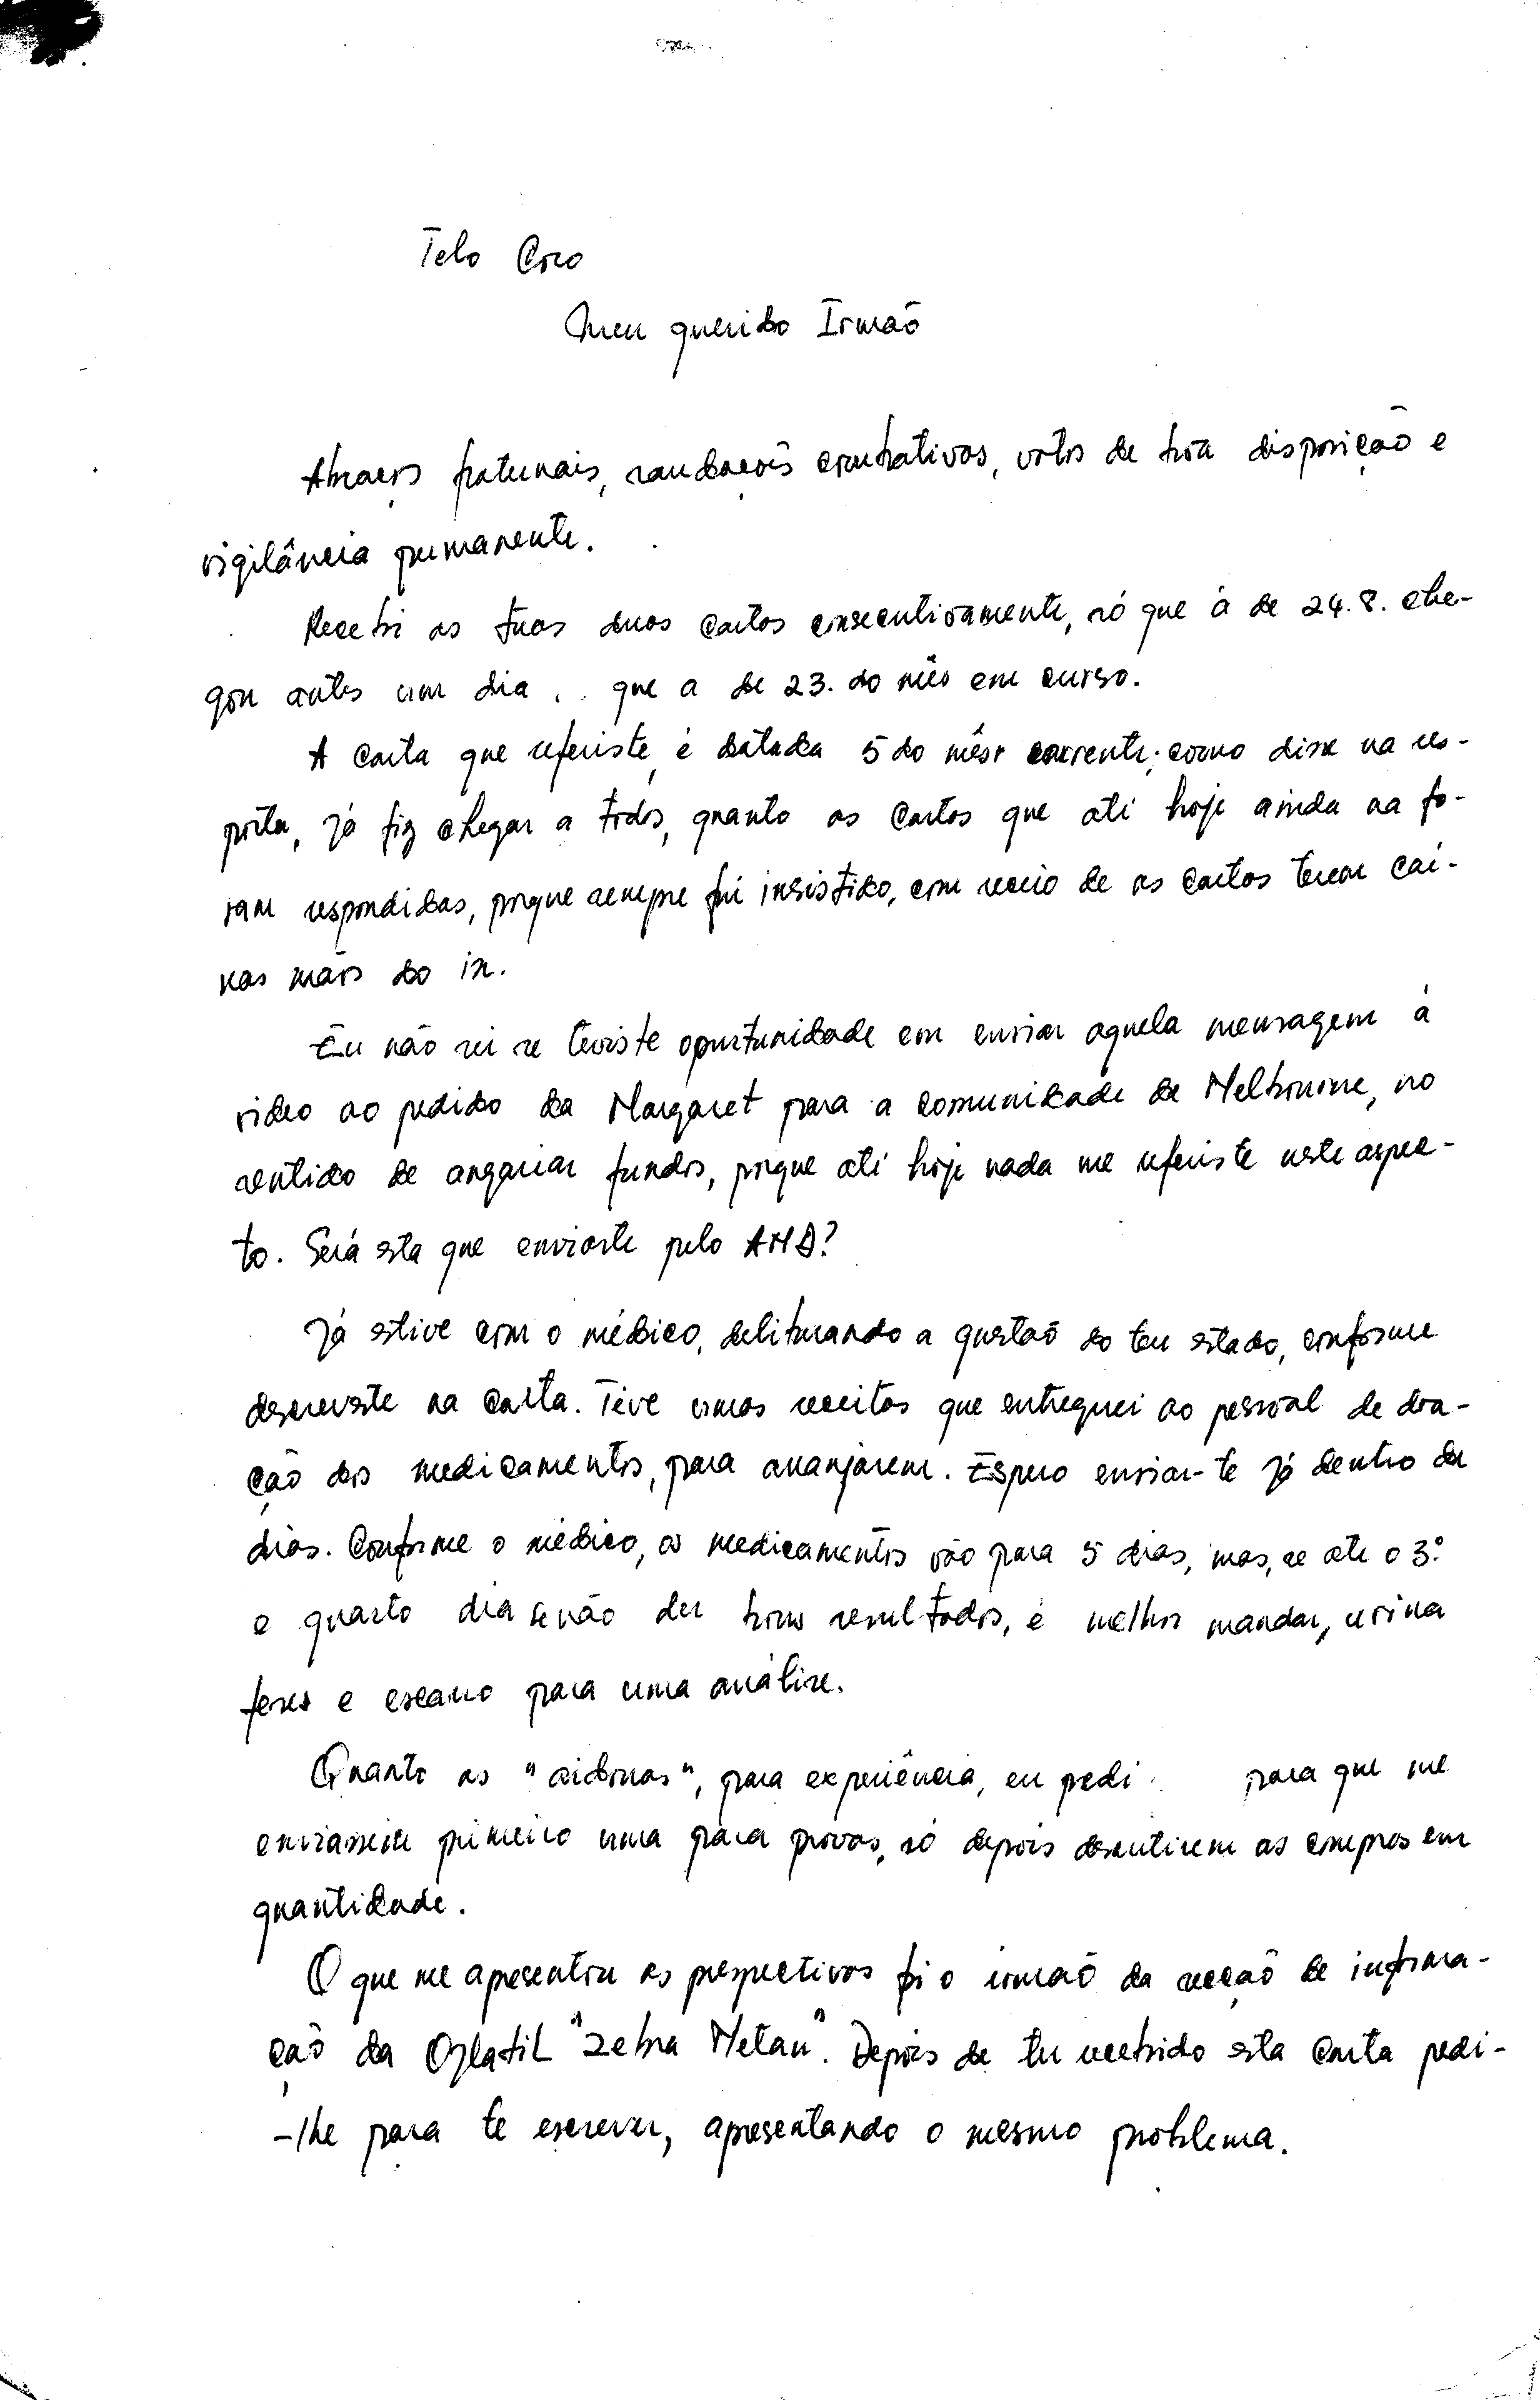 Telo Coro
Meu querido Irmaõ
Abraços fraternais, saudaçoẽs combativas, votos de boa disposiçaõ e
vigilância permanente.
Recebi as tuas duas cartas consecutivamente, só que á de 24.8. che-
gou antes um dia que a de 23. do mês em curso.
A carta que referiste, é datada 5 do mês corrente; como disse na res-
posta, já fiz chegar a todos, quanto as cartas que até hoje ainda na fo-
ram respondidas, porque sempre foi insistido, com receio de as cartas terem caí-
nas maõs do in.
Eu não sei se teviste oportunidade em enviar aquela mensagem á
video ao pedido da Margaret para a comunidade de Melbourne, no
sentido de angariar fundos, porque até hoje nada me referiste neste aspec-
to. Será esta que enviaste pelo AMD?
Já estive com o médico, deliberando a questaõ do teu estado, conforme
descreveste na carta. Teve umas receitas que entreguei ao pessoal de doa-
çaõ dos medicamentos, para arranjarem. Espero enviar-te já dentro de
dias. Conforme o médico, os medicamentos são para 5 dias, mas, se ate o 3º
e quarto dia senão der bons resultados, é melhor mandar, urina
fezes e escarro para uma análise.
Quanto as "aidonas", para experiência, eu pedi para que me
enviassem primeiro uma para provas, só depois discutirem as compras em
quantidade.
O que me apresentou as prespectivas foi o irmaõ da secçaõ de informa-
çaõ da Ojlatil "Zebra Metan". Depois de ter recebido esta carta pedi-
-lhe para te escrever, apresentando o mesmo problema.